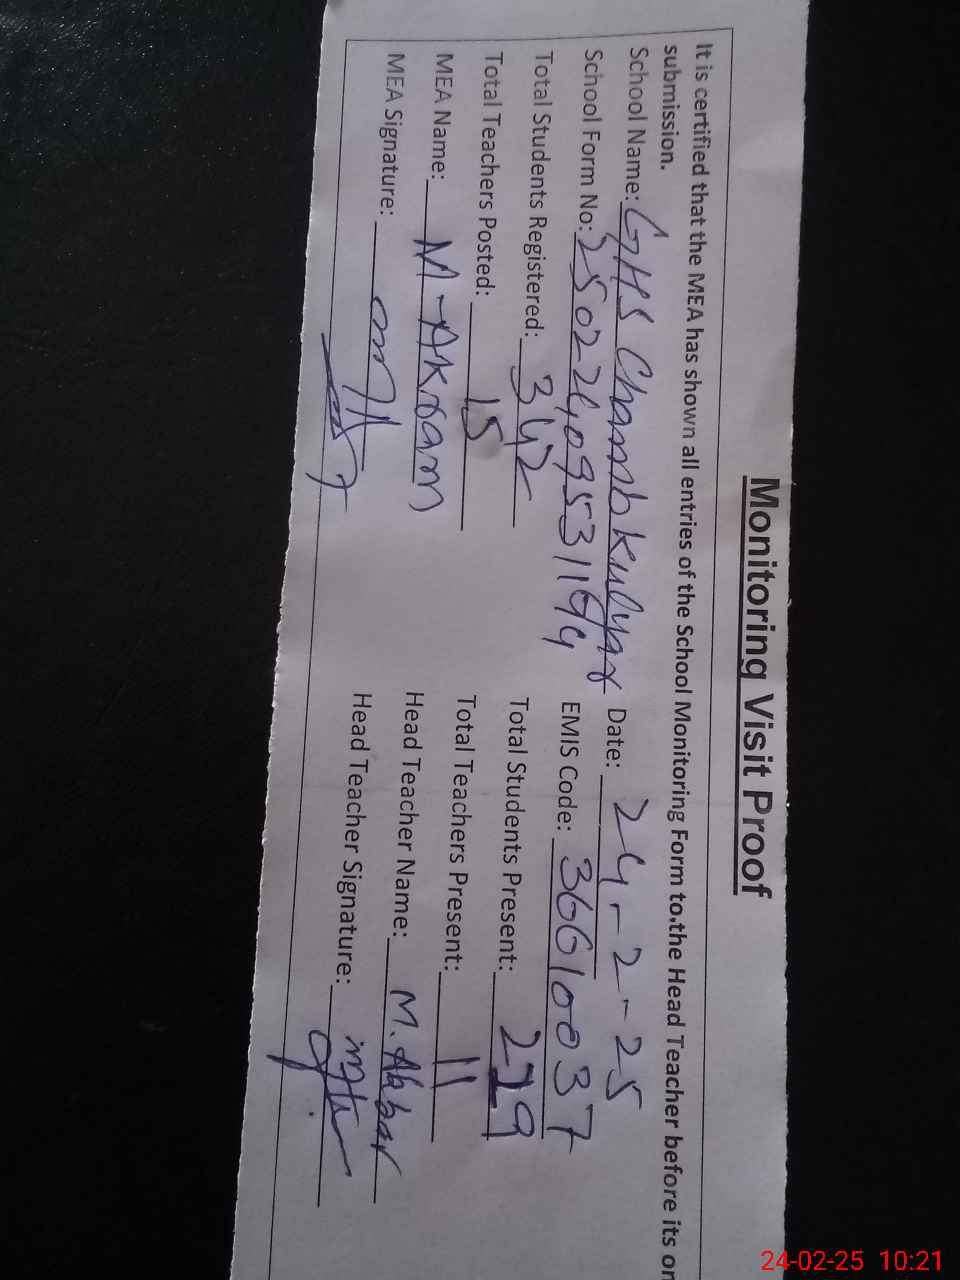 Monitoring Visit Proof
It is certified that the MEA has shown all entries of the School Monitoring Form to the Head Teacher before its on
submission.
School Name: GHS Chamb Kulyar Date: 24-2-25
School Form No: 25022409531194 EMIS Code: 36610037
Total Students Registered: 342 Total Students Present: 279
Total Teachers Posted: 15 Total Teachers Present: 11
MEA Name: M-Akram Head Teacher Name: M. Akbar
MEA Signature: Head Teacher Signature:
24-02-25 10:21